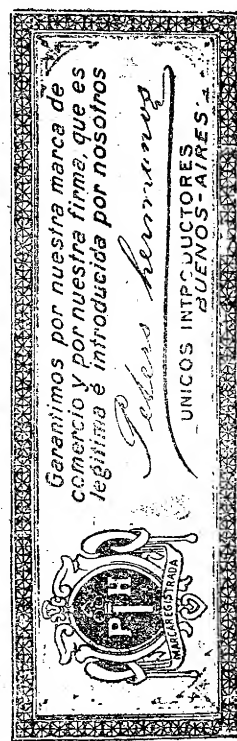 Garantimos por nuestra marca de
comercio y por nuestra firma, que es
legítima é introducida por nosotros
Peters hermanos
UNICOS INTRODUCTORES
BUENOS-AIRES.
P H
MARCA REGISTRADA